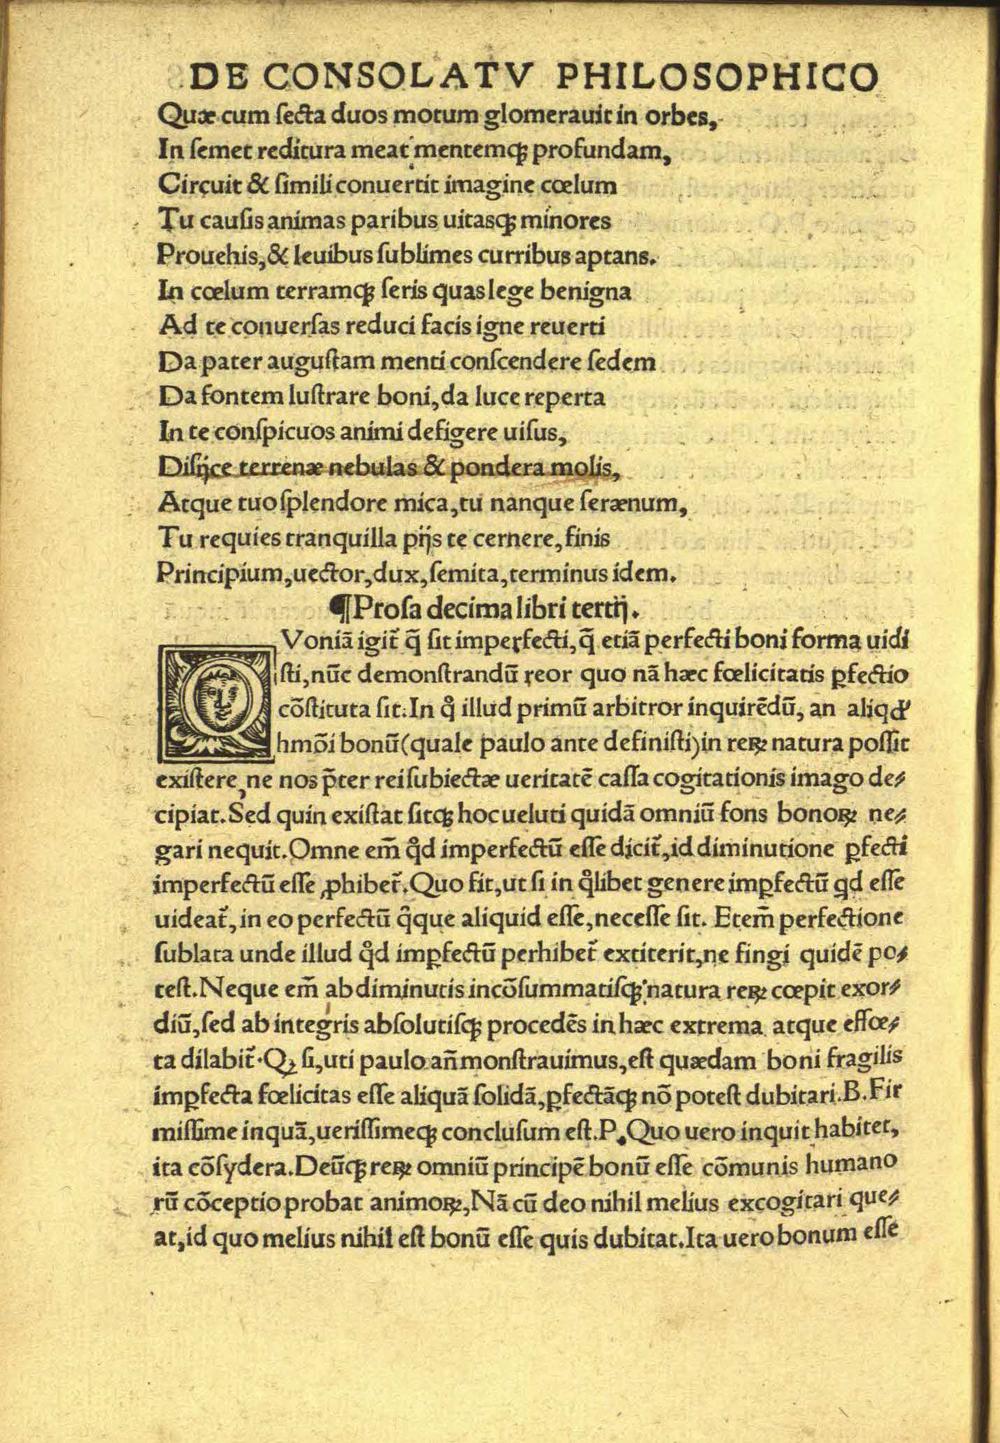 DE CONSOLATV PHILOSOPHICO
Quæ cum ſecta duos motum glomerauit in orbes,
In ſemet reditura meat mentemqꝫ profundam,
Circuit & ſimili conuertit imagine cœlum
Tu cauſis animas paribus uitasqꝫ minores
Prouehis, & leuibus ſublimes curribus aptans.
In cœlum terramqꝫ ſeris quas lege benigna
Ad te conuerſas reduci facis igne reuerti
Da pater auguſtam menti conſcendere ſedem
Da fontem luſtrare boni, da luce reperta
In te conſpicuos animi defigere uiſus,
Diſijce terrenæ nebulas & pondera molis,
Atque tuo ſplendore mica, tu nanque ſerænum,
Tu requies tranquilla pijs te cernere, finis
Principium, uector, dux, ſemita, terminus idem.
¶Proſa decima libri tertij.
QVoniā igit̃ q̃ ſit imperfecti, q̃ etiā perfecti boni forma uidi
ſti, nūc demonſtrandū reor quo nā hæc fœlicitatis ꝑfectio
cōſtituta ſit. In q̊ illud primū arbitror inquirēdū, an aliqd'
hmōi bonū (quale paulo ante definiſti) in reꝝ natura poſſit
exiſtere, ne nos p̄ter rei ſubiectæ ueritatē caſſa cogitationis imago de⸗
cipiat. Sed quin exiſtat ſitqꝫ hoc ueluti quidā omniū fons bonoꝝ ne⸗
gari nequit. Omne em̄ q̊d imperfectū eſſe dicit̃, id diminutione ꝑfecti
imperfectū eſſe ꝓhibet̃. Quo fit, ut ſi in q̊libet genere imꝑfectū qd eſſe
uideat̃, in eo perfectū q̊que aliquid eſſe, neceſſe ſit. Etem̄ perfectione
ſublata unde illud q̊d imꝑfectū perhibet̃ extiterit, ne fingi quidē po⸗
teſt. Neque em̄ ab diminutis incōſummatiſqꝫ natura reꝝ cœpit exor⸗
diū, ſed ab integris abſolutiſqꝫ procedēs in hæc extrema atque effœ⸗
ta dilabit̃. Qꝫ ſi, uti paulo an̄ monſtrauimus, eſt quædam boni fragilis
imꝑfecta fœlicitas eſſe aliquā ſolidā, ꝑfectāqꝫ nō poteſt dubitari. B. Fir
miſſime inquā, ueriſſimeqꝫ concluſum eſt. P. Quo uero inquit habitet,
ita cōſydera. Deūqꝫ reꝝ omniū principē bonū eſſe cōmunis humano
rū cōceptio probat animoꝝ, Nā cū deo nihil melius excogitari que⸗
at, id quo melius nihil eſt bonū eſſe quis dubitat. Ita uero bonum eſſe